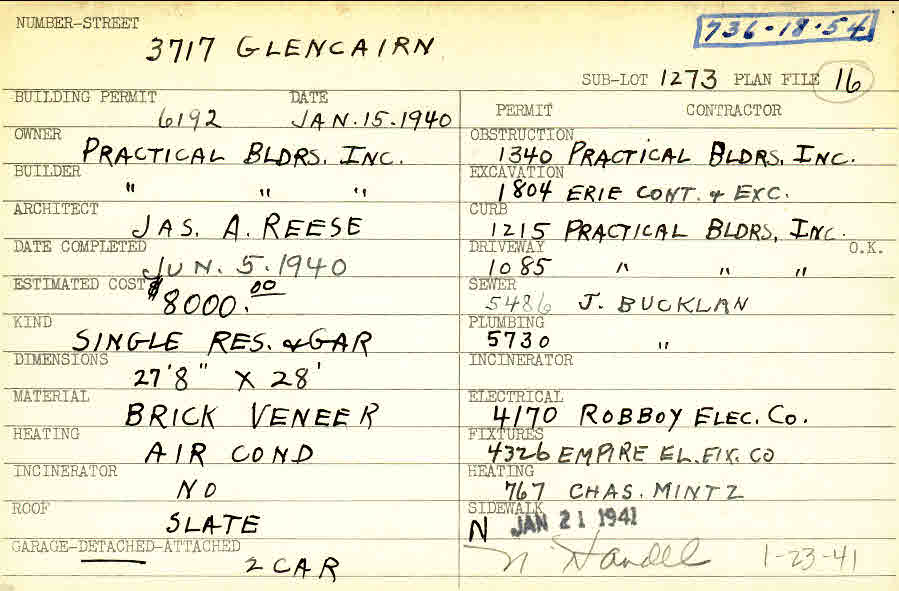 NUMBER-STREET
3717 GLENCAIRN
736-18-54
SUB-LOT 1273 PLAN FILE 16
BUILDING PERMIT DATE
6192 JAN.15.1940
OWNER
PRACTICAL BLDRS. INC.
BUILDER
" " "
ARCHITECT
JAS. A. REESE
DATE COMPLETED
JUN. 5. 1940
ESTIMATED COST
$8000.00
KIND
SINGLE RES. & GAR
DIMENSIONS
27'8" X 28'
MATERIAL
BRICK VENEER
HEATING
AIR COND
INCINERATOR
NO
ROOF
SLATE
GARAGE-DETACHED-ATTACHED
2 CAR
PERMIT CONTRACTOR
OBSTRUCTION
1340 PRACTICAL BLDRS, INC.
EXCAVATION
1804 ERIE CONT. & EXC.
CURB
1215 PRACTICAL BLDRS, INC.
DRIVEWAY O.K.
1085 " " "
SEWER
5486 J. BUCKLAN
PLUMBING
5730 "
INCINERATOR
ELECTRICAL
4170 ROBBOY ELEC. CO.
FIXTURES
4326 EMPIRE EL. FIX. CO
HEATING
767 CHAS. MINTZ
SIDEWALK
N JAN 21 1941
1-23-41